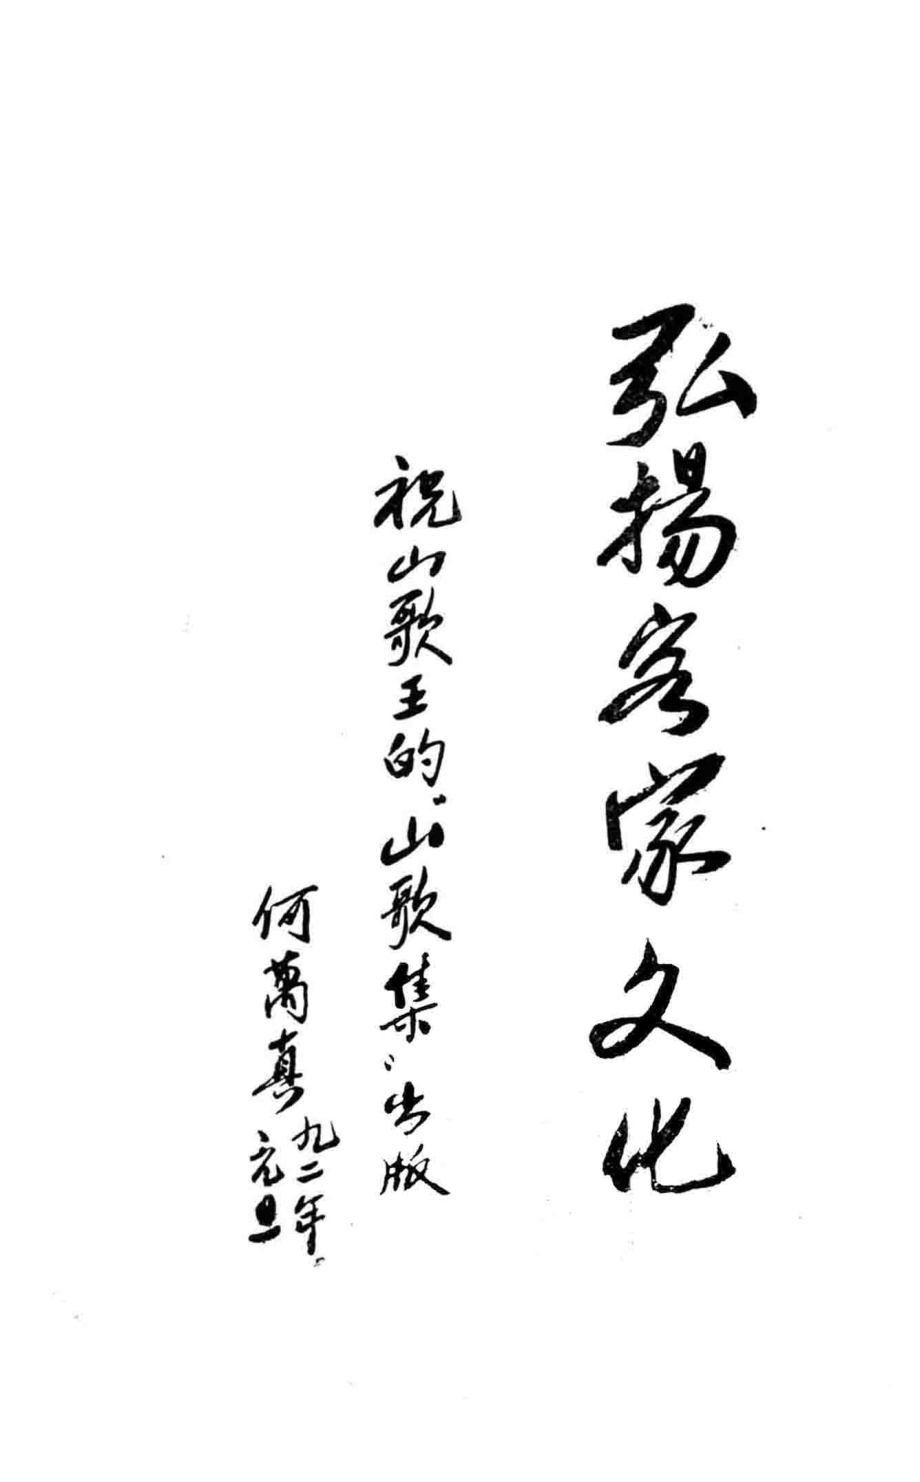 弘揚客家文化
祝山歌王的“山歌集”出版
何萬真
九二年
元旦